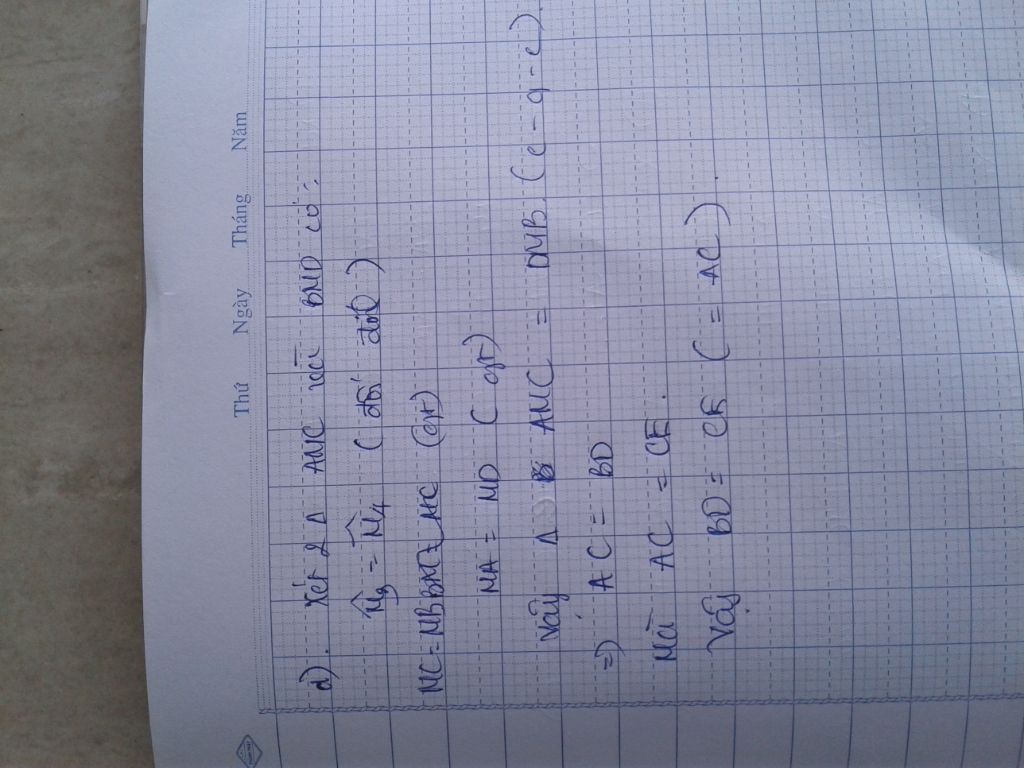 Thứ Ngày Tháng Năm
d). Xét 2 Δ AMC và BMD có:
M̂3 = M̂4 (đối đỉnh)
MC = MB BM = MC (cmt)
MA = MD (cmt)
Vậy Δ AMC = DMB (c - g - c).
=) AC = BD
Mà AC = CE.
Vậy BD = CE (= AC).